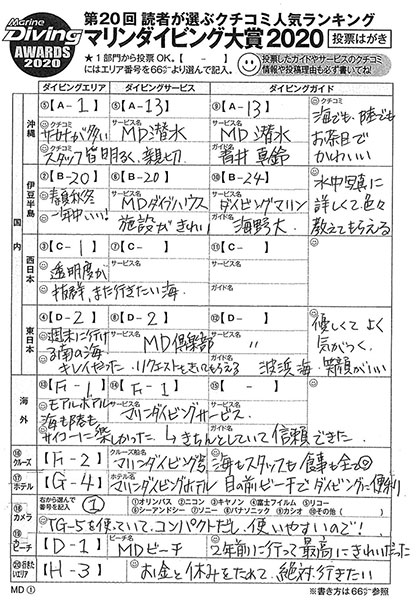 Marine Diving AWARDS 2020
第20回 読者が選ぶクチコミ人気ランキング
マリンダイビング大賞2020 【投票はがき】
★1部門から投票OK。【 - 】
にはエリア番号を66ページより選んで記入。
投票したガイドやサービスのクチコミ
情報や投稿理由も必ず書いてね!
ダイビングエリア ダイビングサービス ダイビングガイド
国内
沖縄
①【A-1】
クチコミ
サカナが多い
⑤【A-13】
サービス名
MD潜水
クチコミ
スタッフ皆明るく、親切
⑨【A-13】
サービス名
MD潜水
ガイド名
青井 真鈴
クチコミ
海でも、陸でも
お茶目で
かわいい
伊豆半島
②【B-20】
春夏秋冬
一年中いい!
⑥【B-20】
サービス名
MDダイブハウス
施設がきれい
⑩【B-24】
サービス名
ダイビングマリン
ガイド名
海野 大
水中写真に
詳しくて色々
教えてもらえる
西日本
③【C-1】
透明度が
抜群、また行きたい海。
⑦【C- 】
サービス名
⑪【C- 】
サービス名
ガイド名
東日本
④【D-2】
週末に行け
る南の海
キレイだった
⑧【D-2】
サービス名
MD倶楽部
リクエストをきいてもらえる
⑫【D- 】
サービス名
〃
ガイド名
波浜 海
優しくて よく
気がつく。
笑顔がいい
海外
⑬【F-1】
モアルボアル
海も陸も
サイコーに楽しかった
⑭【F-1】
サービス名
マリンダイビングサービス。
きちんとしていて信頼できた。
⑮【 - 】
サービス名
ガイド名
⑯クルーズ
【F-2】
クルーズ船名
マリンダイビング号
海もスタッフも食事も全て◎
⑰ホテル
【G-4】
ホテル名
マリンダイビングホテル
目の前ビーチでダイビングに便利
⑱カメラ
右から選んで番号を記入
①
①オリンパス ②ニコン ③キヤノン ④富士フイルム ⑤リコー
⑥シーアンドシー ⑦ソニー ⑧パナソニック ⑨カシオ ⑩その他( )
TG-5を使っていて、コンパクトだし、使いやすいので!
⑲ビーチ
【D-1】
ビーチ名
MDビーチ
2年前に行って最高にきれいだった
⑳行きたいエリア
【H-3】
お金と休みをためて、絶対行きたい
MD①
※書き方は66ページ参照